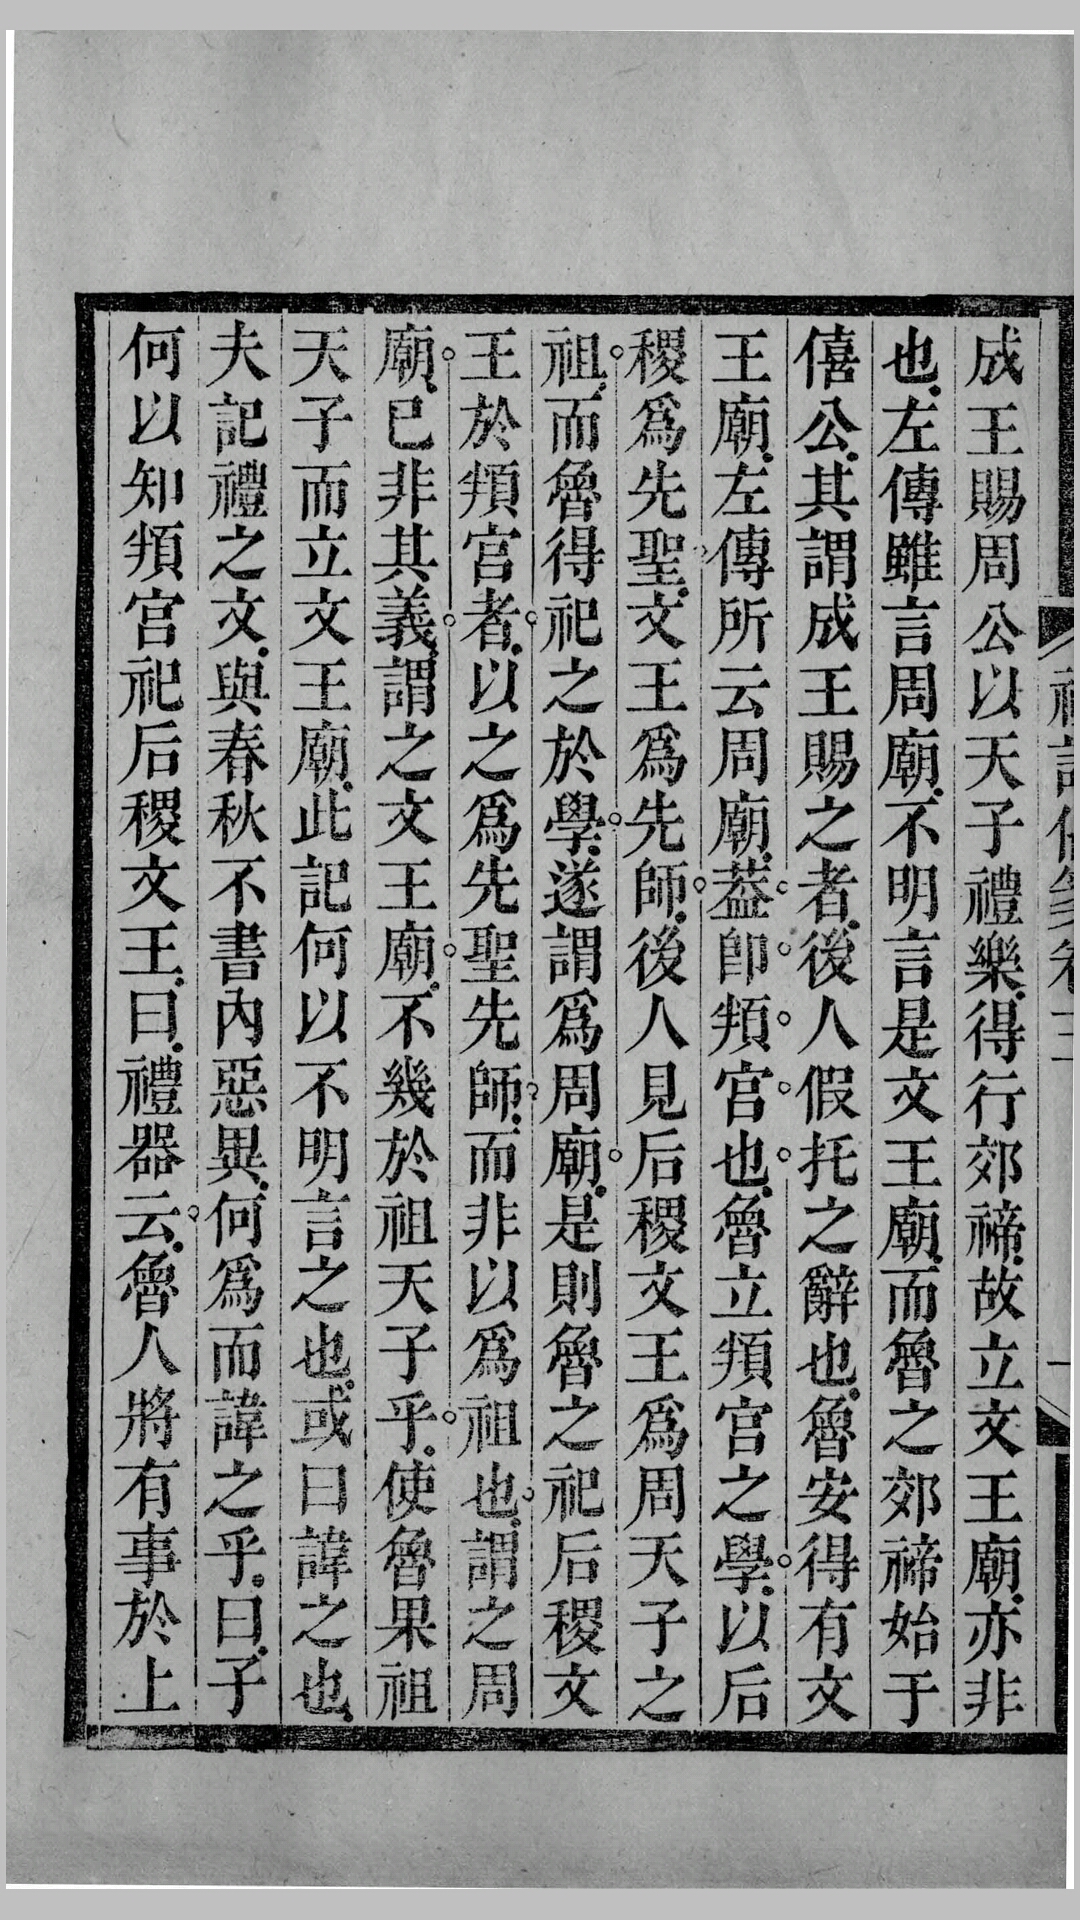 成王賜周公以天子禮樂得行郊禘故立文王廟亦非
也左傳雖言周廟不明言是文王廟而魯之郊禘始于
僖公其謂成王賜之者後人假托之辭也魯安得有文
王廟左傳所云周廟葢卽頖宮也魯立頖宮之學以后
稷爲先聖文王爲先師後人見后稷文王爲周天子之
祖而魯得祀之於學遂謂爲周廟是則魯之祀后稷文
王於頖宮者以之爲先聖先師而非以爲祖也謂之周
廟已非其義謂之文王廟不幾於祖天子乎使魯果祖
天子而立文王廟此記何以不明言之也或曰諱之也
夫記禮之文與春秋不書內惡異何爲而諱之乎曰子
何以知頖宮祀后稷文王曰禮器云魯人將有事於上